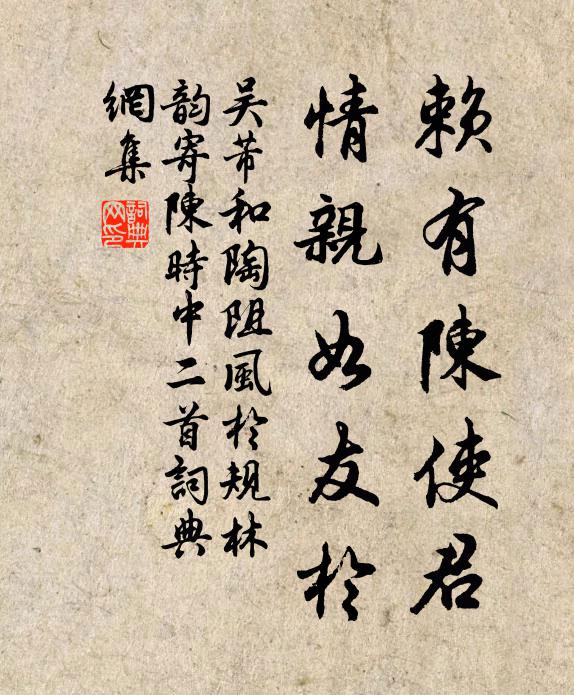 賴有陳使君
情親如友於
吴芾和陶阻風於規林
韵寄陳時中二首詞典
網集
詞典網印